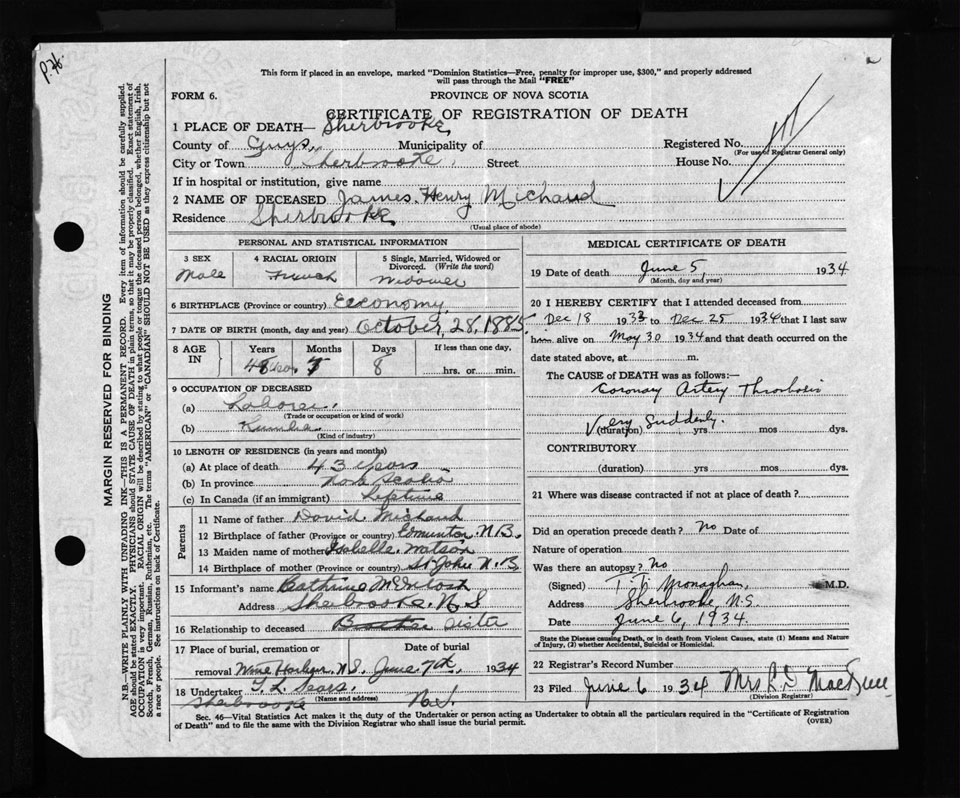 P.H.
This form if placed in an envelope, marked "Dominion Statistics—Free, penalty for improper use, $300," and properly addressed
will pass through the Mail "FREE"
FORM 6.
PROVINCE OF NOVA SCOTIA
CERTIFICATE OF REGISTRATION OF DEATH
1 PLACE OF DEATH— Sherbrooke
County of Guys, Municipality of Registered No.
(For use of Registrar General only)
City or Town Sherbrooke, Street House No.
If in hospital or institution, give name
2 NAME OF DECEASED James Henry Michaud
Residence Sherbrooke
(Usual place of abode)
PERSONAL AND STATISTICAL INFORMATION
3 SEX 4 RACIAL ORIGIN 5 Single, Married, Widowed or Divorced. (Write the word)
Male French Widower
6 BIRTHPLACE (Province or country) Eeconomy
7 DATE OF BIRTH (month, day and year) October, 28, 1885
8 AGE IN Years Months Days If less than one day,
48 7 8 hrs. or min.
9 OCCUPATION OF DECEASED
(a) Laborer
(Trade or occupation or kind of work)
(b)
(Kind of industry)
10 LENGTH OF RESIDENCE (in years and months)
(a) At place of death 43 years
(b) In province Nova Scotia
(c) In Canada (if an immigrant) Lifetime
Parents
11 Name of father David Michaud
12 Birthplace of father (Province or country) N.B.
13 Maiden name of mother Isabelle Watson
14 Birthplace of mother (Province or country) St John N.B
15 Informant's name Cathrine McIntosh
Address Sherbrooke. N.S
16 Relationship to deceased Brother Sister
17 Place of burial, cremation or Date of burial
removal Wine Harbor, N.S. June 7th, 1934
18 Undertaker T. L. Sears,
Sherbrooke (Name and address) N.S.
MEDICAL CERTIFICATE OF DEATH
19 Date of death June 5, 1934
(Month, day and year)
20 I HEREBY CERTIFY that I attended deceased from
Dec 18 1933 to Dec 25 1934 that I last saw
him alive on May 30 1934 and that death occurred on the
date stated above, at m.
The CAUSE of DEATH was as follows:—
Coronary Artery Thrombosis
Very Suddenly.
(duration) yrs mos dys.
CONTRIBUTORY
(duration) yrs mos dys.
21 Where was disease contracted if not at place of death?
Did an operation precede death? No Date of
Nature of operation
Was there an autopsy? No
(Signed) Monaghan, M.D.
Address Sherbrooke, N.S.
Date June 6, 1934.
State the Disease causing Death, or in death from Violent Causes, state (1) Means and Nature
of Injury, (2) whether Accidental, Suicidal or Homicidal.
22 Registrar's Record Number
23 Filed June 6 1934 Mrs
(Division Registrar)
Sec. 46—Vital Statistics Act makes it the duty of the Undertaker or person acting as Undertaker to obtain all the particulars required in the "Certificate of Registration
of Death" and to file the same with the Division Registrar who shall issue the burial permit.
(OVER)
MARGIN RESERVED FOR BINDING
N.B.—WRITE PLAINLY WITH UNFADING INK—THIS IS A PERMANENT RECORD. Every item of information should be carefully supplied.
AGE should be stated EXACTLY. PHYSICIANS should STATE CAUSE OF DEATH in plain terms, so that it may be properly classified. Exact statement of
OCCUPATION is very important. RACIAL ORIGIN will be described by stating to what people or tongue the deceased person belonged, whether English, Irish,
Scotch, French, German, Russian, Ruthenian, etc. The terms "AMERICAN" or "CANADIAN" SHOULD NOT BE USED as they express citizenship but not
a race or people. See instructions on back of Certificate.